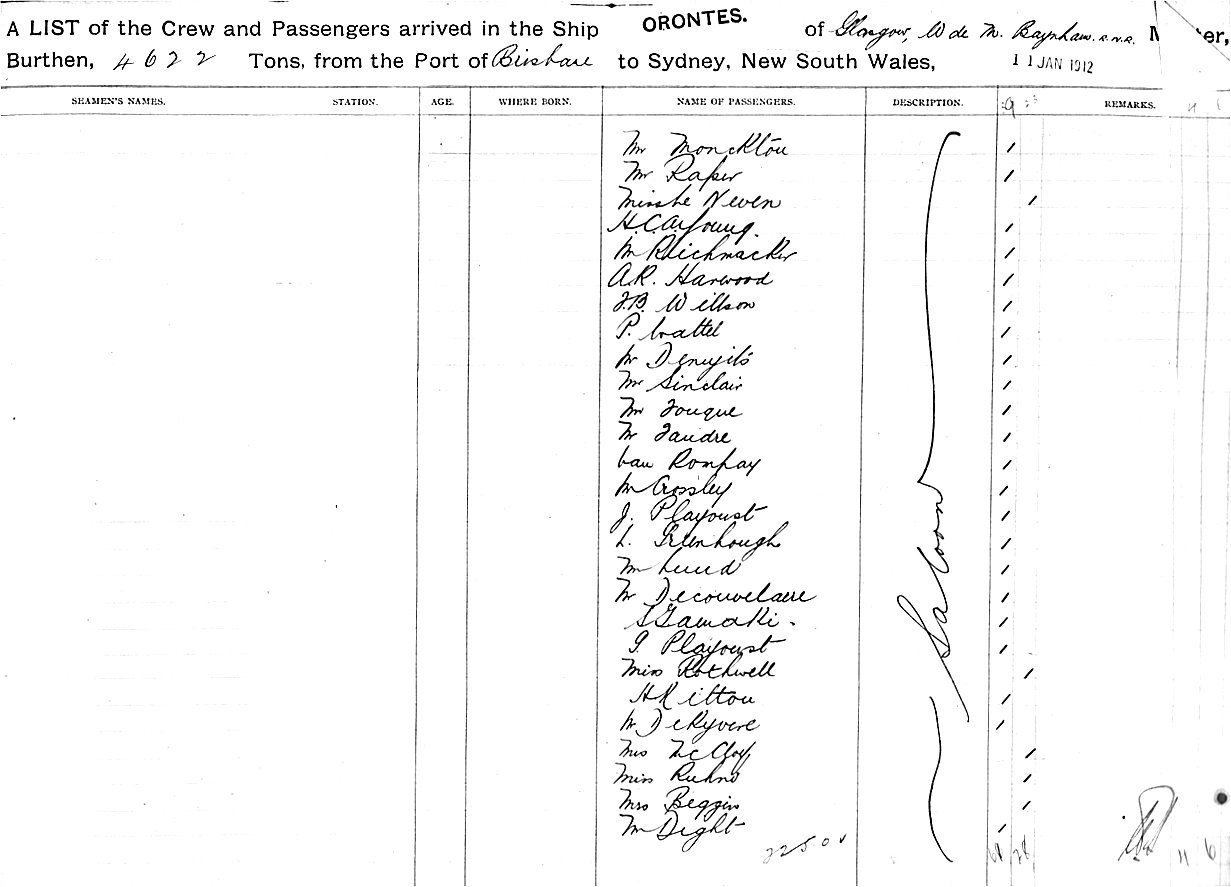 A LIST of the Crew and Passengers arrived in the Ship ORONTES. of Glasgow, W de M. Baynham. R.N.R. M ter,
Burthen, 4622 Tons, from the Port of Brisbane to Sydney, New South Wales, 11 JAN 1912
SEAMEN'S NAMES. STATION. AGE. WHERE BORN. NAME OF PASSENGERS. DESCRIPTION. REMARKS.
Mr Monckton
Mr Raper
Neven
H.C.A. Young.
Mr
A.R. Harwood
J.B. Willson
P. Wattel
Mr
Mr Sinclair
Mr Fouque
Mr Faudre
Van Rompay
Mr Crossley
J. Playoust
L. Greenhough
Mr Lund
Mr Decouvelaere
Saloon
G. Playoust
Miss Rothwell
H Kitton
Mr DeKyvere
Mrs McCloy
Miss Ruhno
Mrs Beggin
Mr Dight